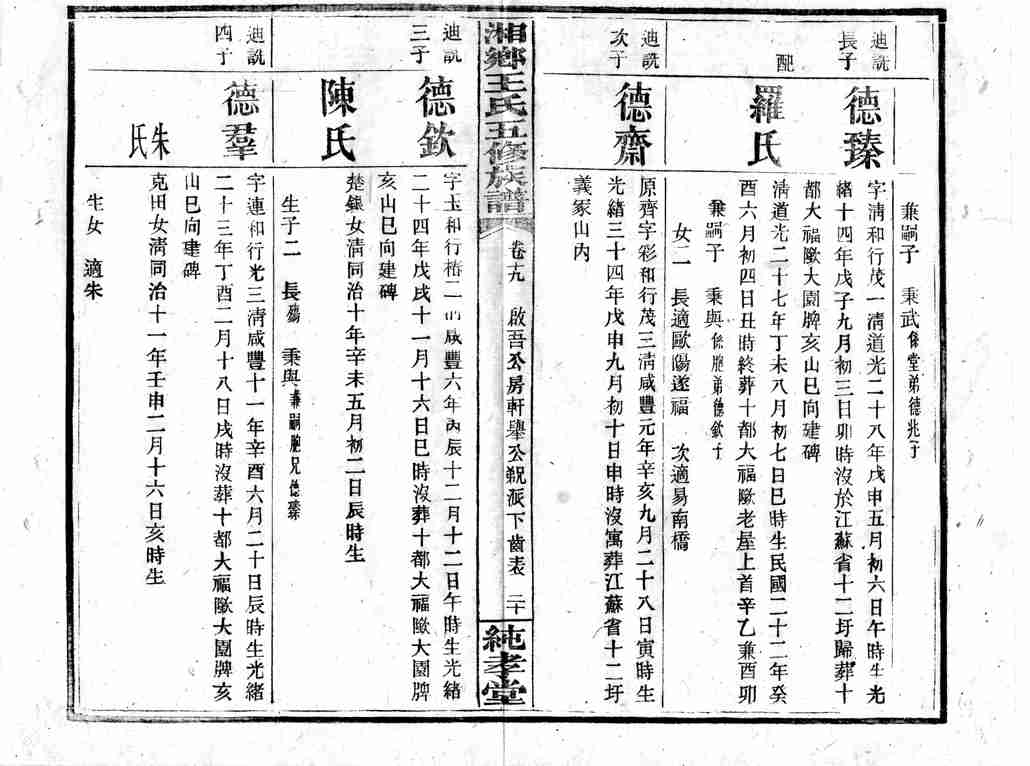 兼嗣子　秉武係堂弟德兆子
迪詵長子
德臻
字清和行茂一清道光二十八年戊申五月初六日午時生光
緒十四年戊子九月初三日卯時沒於江蘇省十二圩歸葬十
都大福歐大園牌亥山巳向建碑
配
羅氏
清道光二十七年丁未八月初七日巳時生民國二十二年癸
酉六月初四日丑時終葬十都大福歐老屋上首辛乙兼酉卯
兼嗣子　秉與係胞弟德欽子
女二　長適歐陽遂福　次適易南橋
迪詵次子
德齋
原齊字彩和行茂三清咸豐元年辛亥九月二十八日寅時生
光緒三十四年戊申九月初十日申時沒寓葬江蘇省十二圩
義冢山内
湘鄉王氏五修族譜　卷十九　啟吾公房軒舉公派下齒表　二十　純孝堂
迪詵三子
德欽
字玉和行椿二清咸豐六年丙辰十二月十二日午時生光緒
二十四年戊戌十一月十六日巳時沒葬十都大福歐大園牌
亥山巳向建碑
陳氏
楚銀女清同治十年辛未五月初二日辰時生
生子二　長殤　秉與兼嗣胞兄德臻
迪詵四子
德羣
字連和行光三清咸豐十一年辛酉六月二十日辰時生光緒
二十三年丁酉二月十八日戌時沒葬十都大福歐大園牌亥
山巳向建碑
朱氏
克田女清同治十一年壬申二月十六日亥時生
生女　適朱